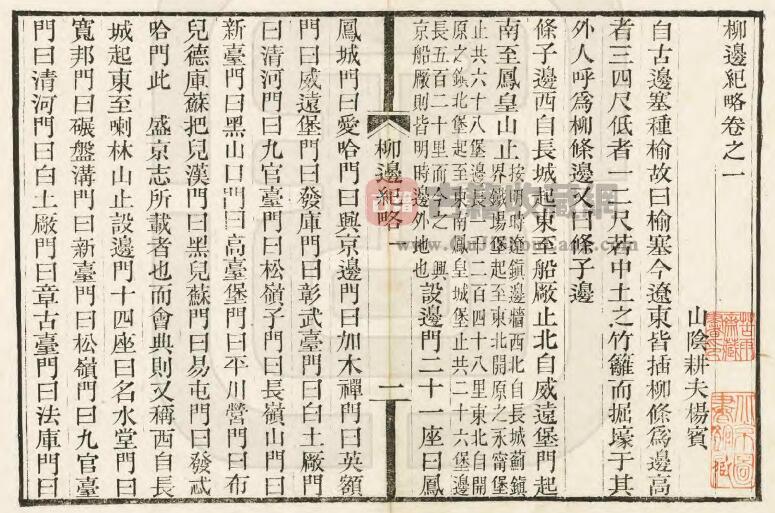 柳邊紀略卷之一
山陰耕夫楊賓
自古邊塞種榆故曰榆塞今遼東皆插柳條爲邊高
者三四尺低者一二尺若中土之竹籬而掘壕于其
外人呼爲柳條邊又曰條子邊
條子邊西自長城起東至船廠止北自威遠堡門起
南至鳳皇山止
按明時遼鎭邊牆西北自長城薊鎭
界鐵塲堡起至東北開原之永甯堡
止共六十八堡邊長一千二百四十八里東北自開
原之鎭北堡起至東南鳳皇城堡止共二十六堡邊
長五百二十里而今之　興
京船廠則皆明時邊外地也
設邊門二十一座曰鳳
柳邊紀略 一
一
鳳城門曰愛哈門曰興京邊門曰加木禪門曰英額
門曰威遠堡門曰發庫門曰彰武臺門曰白土厰門
曰清河門曰九官臺門曰松嶺子門曰長嶺山門曰
新臺門曰黑山口門曰高臺堡門曰平川營門曰布
兒德庫蘇把兒漢門曰黑兒蘇門曰易屯門曰發忒
哈門此　盛京志所載者也而會典則又稱西自長
城起東至喇林山止設邊門十四座曰名水堂門曰
寬邦門曰碾盤溝門曰新臺門曰松嶺門曰九官臺
門曰清河門曰白土厰門曰章古臺門曰法庫門曰